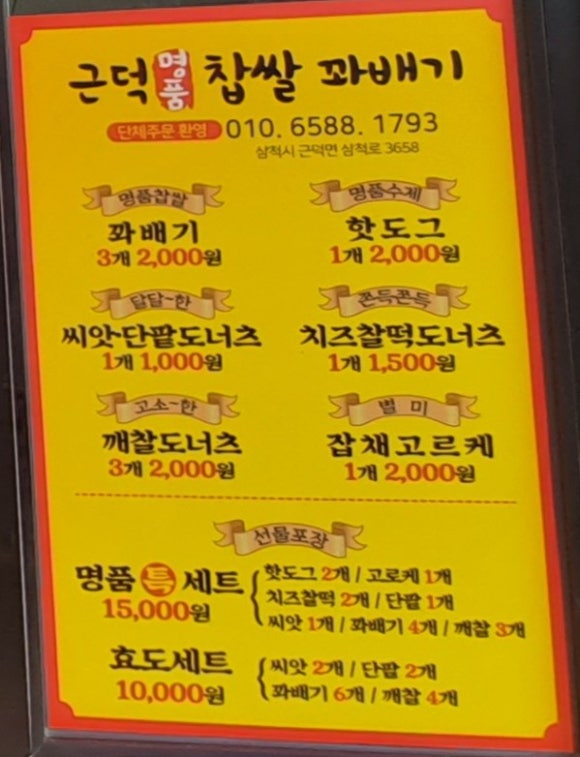 근덕 명품 찹쌀 꽈배기
단체주문 환영 010. 6588. 1793
삼척시 근덕면 삼척로 3658
명품찹쌀
꽈배기
3개 2,000원
명품수제
핫도그
1개 2,000원
달달~한
씨앗·단팥도너츠
1개 1,000원
쫀득쫀득
치즈찰떡도너츠
1개 1,500원
고소~한
깨찰도너츠
3개 2,000원
별 미
잡채고르케
1개 2,000원
선물포장
명품 특 세트
15,000원
핫도그 2개 / 고로케 1개
치즈찰떡 2개 / 단팥 1개
씨앗 1개 / 꽈배기 4개 / 깨찰 3개
효도세트
10,000원
씨앗 2개 / 단팥 2개
꽈배기 6개 / 깨찰 4개